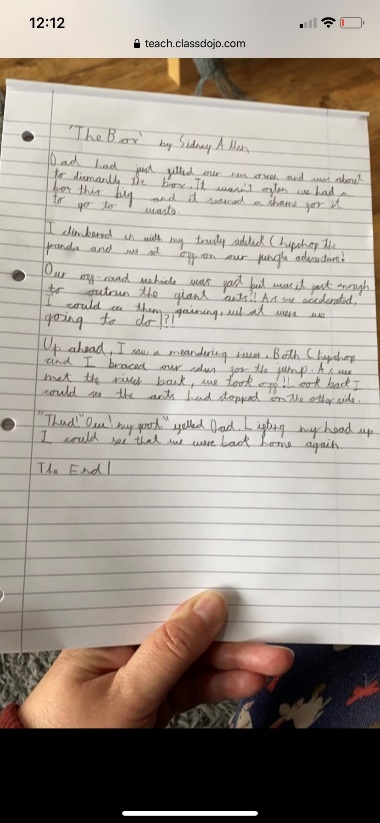 12:12
teach.classdojo.com
'The Box' by Sidney Allen
Dad had just fitted our new oven and was about
to dismantle the box. It wasn't often we had a
box this big and it seemed a shame for it
to go to waste.
I clambered in with my trusty Chipchop the
panda and we set off on our jungle adventure!
Our off-road vehicle was fast but was it fast enough
to outrun the giant ants!! As we accelerated,
I could see them gaining, what were we
going to do!?!
Up ahead, I saw a meandering river. Both Chipchop
and I braced our selves for the jump. As we
met the river bank, we took off!! Look back I
could see the ants had stopped on the other side.
"Thud!" "Ow! my foot" yelled Dad. Lifting my head up
I could see that we were back home again.
The End!